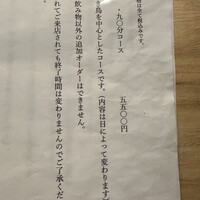 は全て税込みです。
・九〇分コース　五五〇〇円
鳥を中心としたコースです。（内容は日によって変わります
飲み物以外の追加オーダーはできません。
れてご来店されても終了時間は変わりませんのでご了承くだ